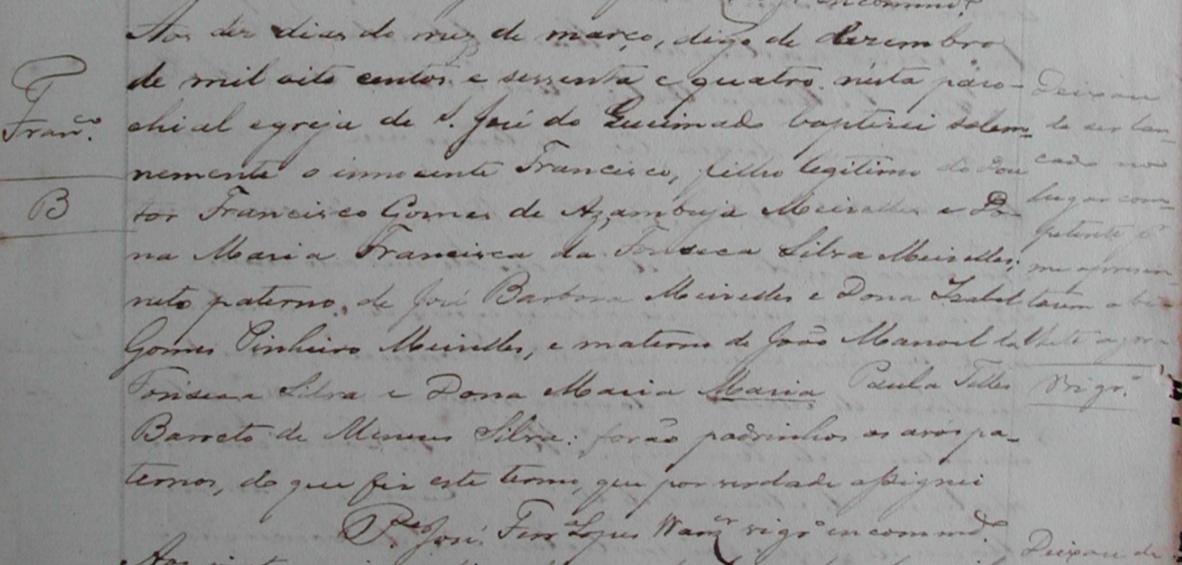 encommd.º
Aos dez dias do mez de março, digo de dezembro
de mil oito centos e sessenta e quatro nésta páro-
chial egreja de S. José do Queimado baptizei solem-
nemente o innocente Francisco, filho legitimo do Dou
tor Francisco Gomes de Azambuja Meirelles e Do-
na Maria Francisca da Fonseca Silva Meirelles;
neto paterno, de José Barbosa Meirelles e Dona Izabel
Gomes Pinheiro Meirelles, e materno de João Manoel da
Fonseca Silva e Dona Maria Maria Paula Telles
Barreto de Menezes Silva: forão padrinhos os avós pa-
ternos, do que fiz este termo, que por verdade assignei
P.e José Ferr.a Lopes vigr.º encommd.º
Franc.co
B
Deixou
de ser lan-
çado no
lugar com-
petente p.r
me apresen-
tarem o bi-
lhete agora
Vigr.º
Deixou de